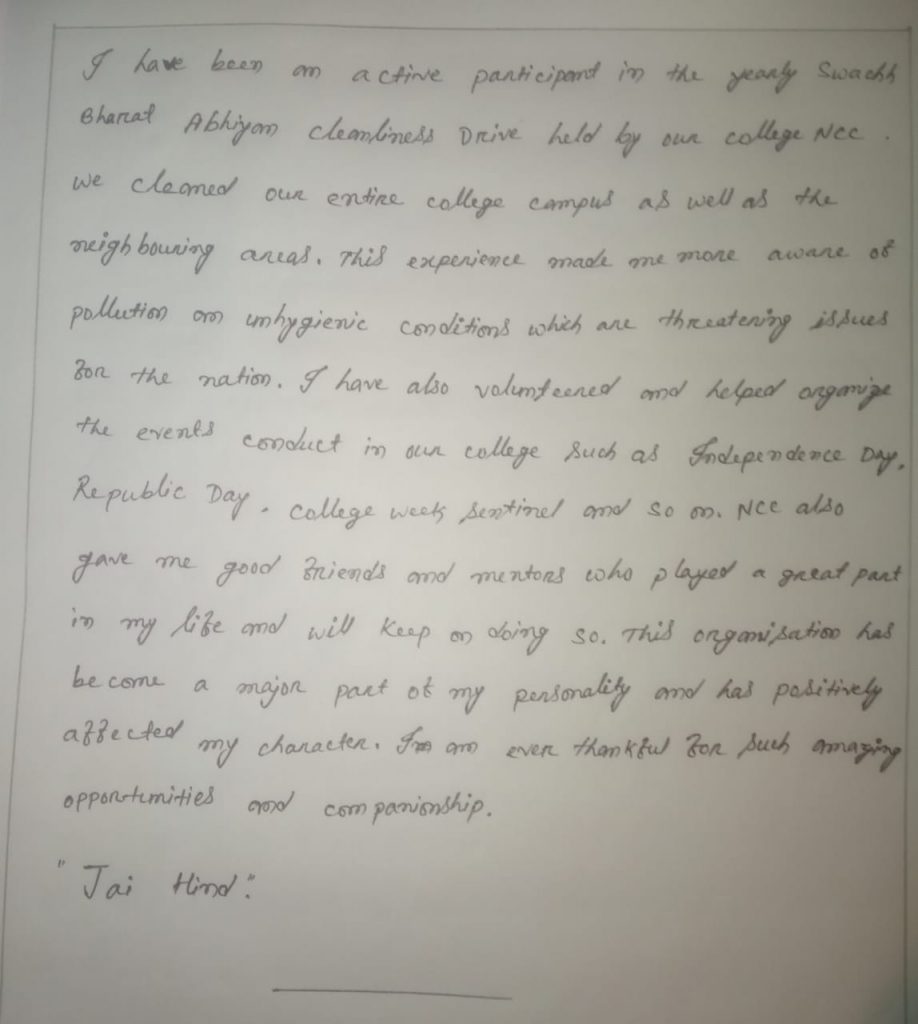 I have been an active participant in the yearly Swachh
Bharat Abhiyan cleanliness Drive held by our college NCC.
We cleaned our entire college campus as well as the
neighbouring areas. This experience made me more aware of
pollution an unhygienic conditions which are threatening issues
for the nation. I have also volunteered and helped organize
the events conduct in our college such as Independence Day,
Republic Day. college week sentinel and so on. NCC also
gave me good friends and mentors who played a great part
in my life and will keep on doing so. This organisation has
become a major part of my personality and has positively
affected my character. I'm am ever thankful for such amazing
opportunities and companionship.
"Jai Hind".